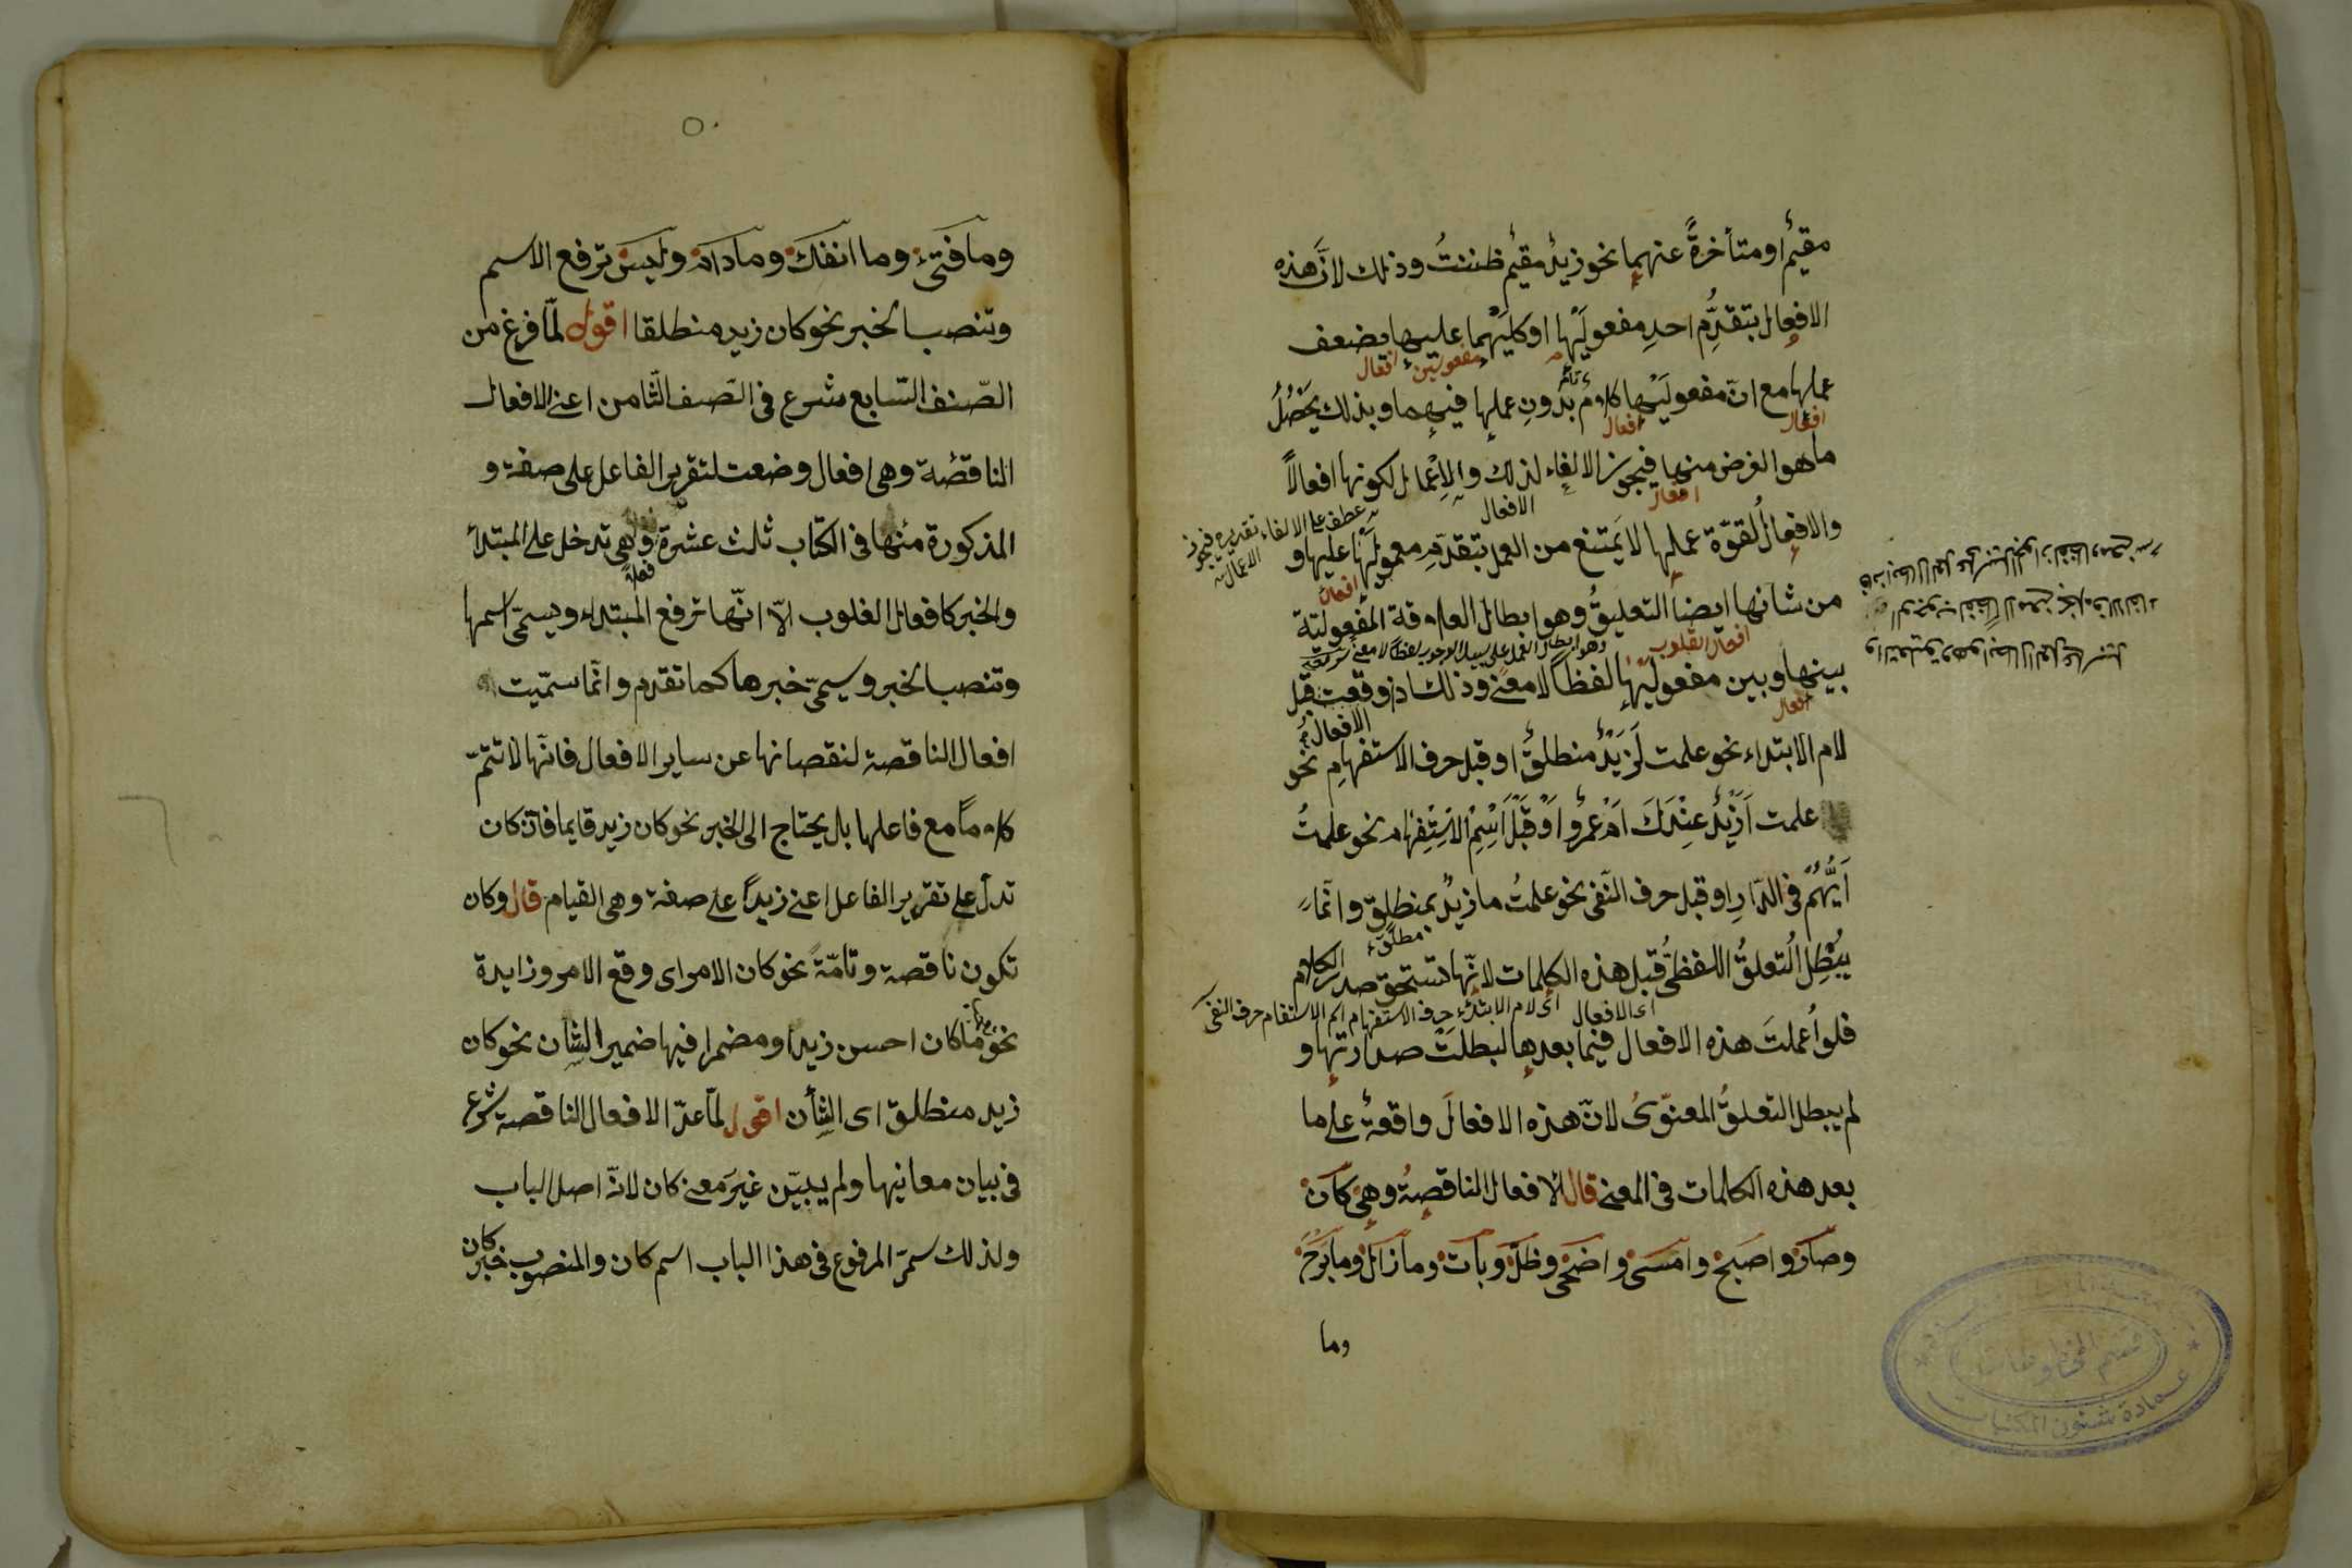 مقيمٌ او متأخرةً عنهما نحو زيدٌ مقيمٌ ظننتُ وذلك لانَّ هذه
الافعال بتقدُّمِ احدِ مفعولَيْها او كليهما عليها يضعف
مفعولين افعال
عملها مع انّ مفعولَيْها كلامٌ بدُونِ عملِها فيهما وبذلك يحْصُلُ
تام
افعال افعال
ما هو الغرض منها فيجوز الالغاء لذلك والاِعْمال لكونها افعالاً
افعال الافعال
عطف على الالغاء تقديره فيجوز الاعمال
والافعالُ لقوّة عملها لا يَمتنع من العمل بتقدّمِ معمولَيْها عليها و
افعال
من شأنها ايضاً التعليقُ وهو ابطال العلاقة المفعوليّة
افعال القلوب
وهو ابطال العمل على سبيل الوجوب لفظاً لا معنى
بينها وبين مفعوليْها لفظاً لا معنًى وذلك اذ وقعت قبل
افعال الافعال
لام الابتداء نحو علمت لَزيدٌ منطلقٌ او قبل حرف الاستفهامِ نحو
علمت اَزَيْدٌ عِنْدَكَ اَمْ عَمْرٌو اَوْ قَبْلَ اسْمِ الاسْتِفْهام نحو علمتُ
اَيُّهُمْ فى الدّارِ او قبل حرف النّفى نحو علمتُ ما زيدٌ بمنطلقٍ وانّما
يُبْطِل التعلقُّ اللفظىُّ قبل هذه الكلمات لانّها تستحق صدر الكلام
مطلق
اى الافعال اى لام الابتداء حرف الاستفهام اسم الاستفهام حرف النفى
فلو اُعملتَ هذه الافعال فيما بعدها لبطلَتْ صدارتها و
لم يبطل التعلقُّ المعنوّىُ لانّ هذه الافعالَ واقعةٌ على ما
بعد هذه الكلمات فى المعنى قال الافعال الناقصةُ وهى كان
وصار واصبح وامسى واضحى وظلّ وبات وما زال وما برح
وما
قسم المخطوطات
عمادة شئون المكتبات
٥٠
وما فتئ وما انفكّ وما دام وليس ترفع الاسم
وتنصب الخبر نحو كان زيد منطلقا اقول لمّا فرغ من
الصّنف السّابع شرع فى الصّنف الثّامن اعنى الافعال
الناقصة وهى افعال وضعت لتقرير الفاعل على صفة و
المذكورة منها فى الكتاب ثلث عشرة وهى تدخل على المبتدأ
فعلا
والخبر كافعال القلوب الاّ انّها ترفع المبتداء ويسمّى اسمها
وتنصب الخبر ويسمّى خبرها كما تقدم وانّما سمّيت
افعال الناقصة لنقصانها عن ساير الافعال فانّها لا تتمّ
كلاماً مع فاعلها بل يحتاج الى الخبر نحو كان زيد قايما فانّ كان
تدلّ على تقرير الفاعل اعنى زيداً على صفة وهى القيام قال وكان
تكون ناقصة وتامّةً نحو كان الامر اى وقع الامر وزايدة
نحو ما كان احسن زيدا ومضمرا فيها ضمير الشان نحو كان
زيد منطلق اى الشأن اقول لمّا عدّ الافعال الناقصة شرع
فى بيان معانيها ولم يبيّن غيرَ معنى كان لانّه اصل الباب
ولذلك سمّى المرفوع فى هذا الباب اسم كان والمنصوب خبر كان